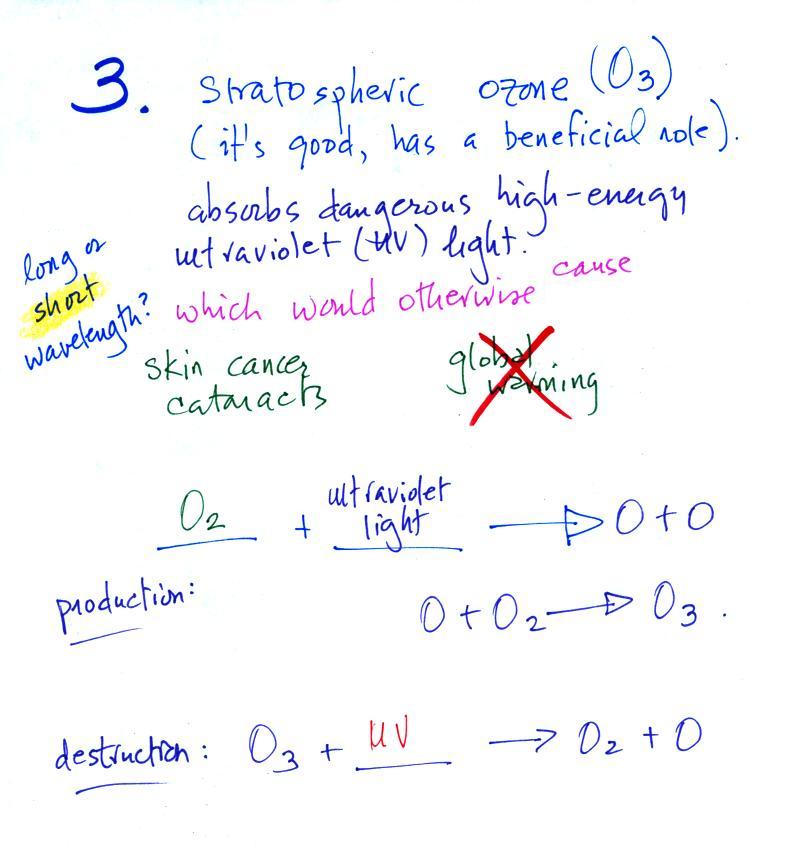 3. Stratospheric ozone (O3)
(it's good, has a beneficial role).
absorbs dangerous high-energy
ultraviolet (UV) light.
long or
short
wavelength?
which would otherwise cause
skin cancer
cataracts
global
warming
O2 + ultraviolet light → O + O
production:
O + O2 → O3.
destruction: O3 + UV → O2 + O